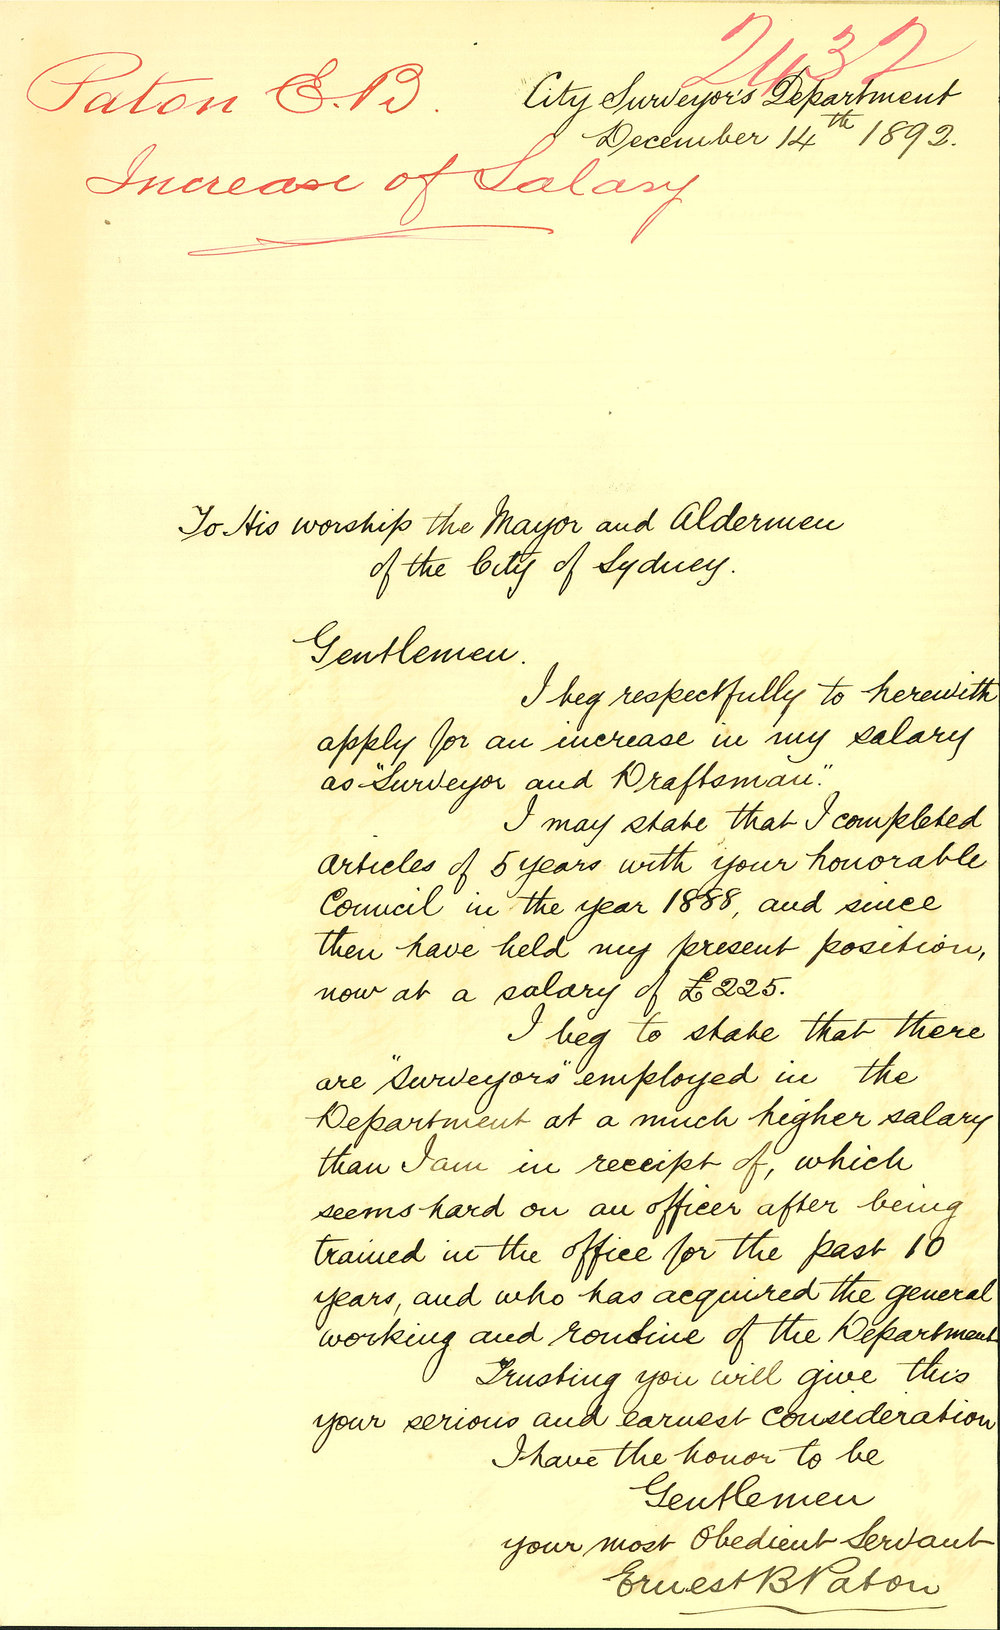 2432
Paton E.B.
City Surveyor's Department
December 14th 1892.
Increase of Salary
To His worship the Mayor and Aldermen
of the City of Sydney.
Gentlemen.
I beg respectfully to herewith
apply for an increase in my salary
as "Surveyor and Draftsman."
I may state that I completed
articles of 5 years with your honorable
Council in the year 1888, and since
then have held my present position,
now at a salary of £225.
I beg to state that there
are "Surveyors" employed in the
Department at a much higher salary
than I am in receipt of, which
seems hard on an officer after being
trained in the office for the past 10
years, and who has acquired the general
working and routine of the Department
Trusting you will give this
your serious and earnest consideration
I have the honor to be
Gentlemen
your most Obedient Servant
Ernest B Paton